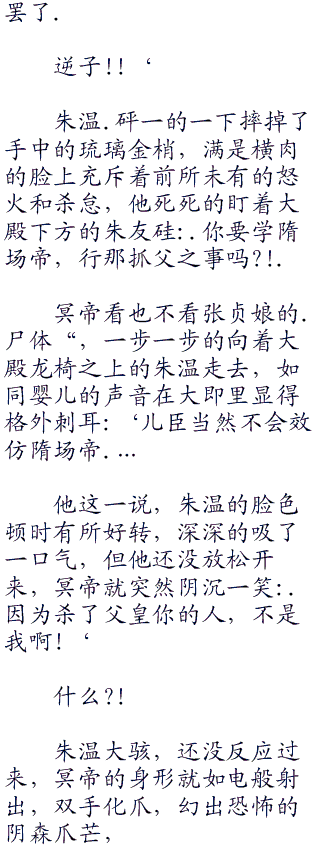 罢了.
逆子!! ‘
朱温.砰一的一下摔掉了
手中的琉璃金梢，满是横肉
的脸上充斥着前所未有的怒
火和杀怠，他死死的盯着大
殿下方的朱友硅:.你要学隋
场帝，行那抓父之事吗?!.
冥帝看也不看张贞娘的.
尸体“，一步一步的向着大
殿龙椅之上的朱温走去，如
同婴儿的声音在大即里显得
格外刺耳: ‘儿臣当然不会效
仿隋场帝....
他这一说，朱温的脸色
顿时有所好转，深深的吸了
一口气，但他还没放松开
来，冥帝就突然阴沉一笑:.
因为杀了父皇你的人，不是
我啊! ‘
什么?!
朱温大骇，还没反应过
来，冥帝的身形就如电般射
出，双手化爪，幻出恐怖的
阴森爪芒，